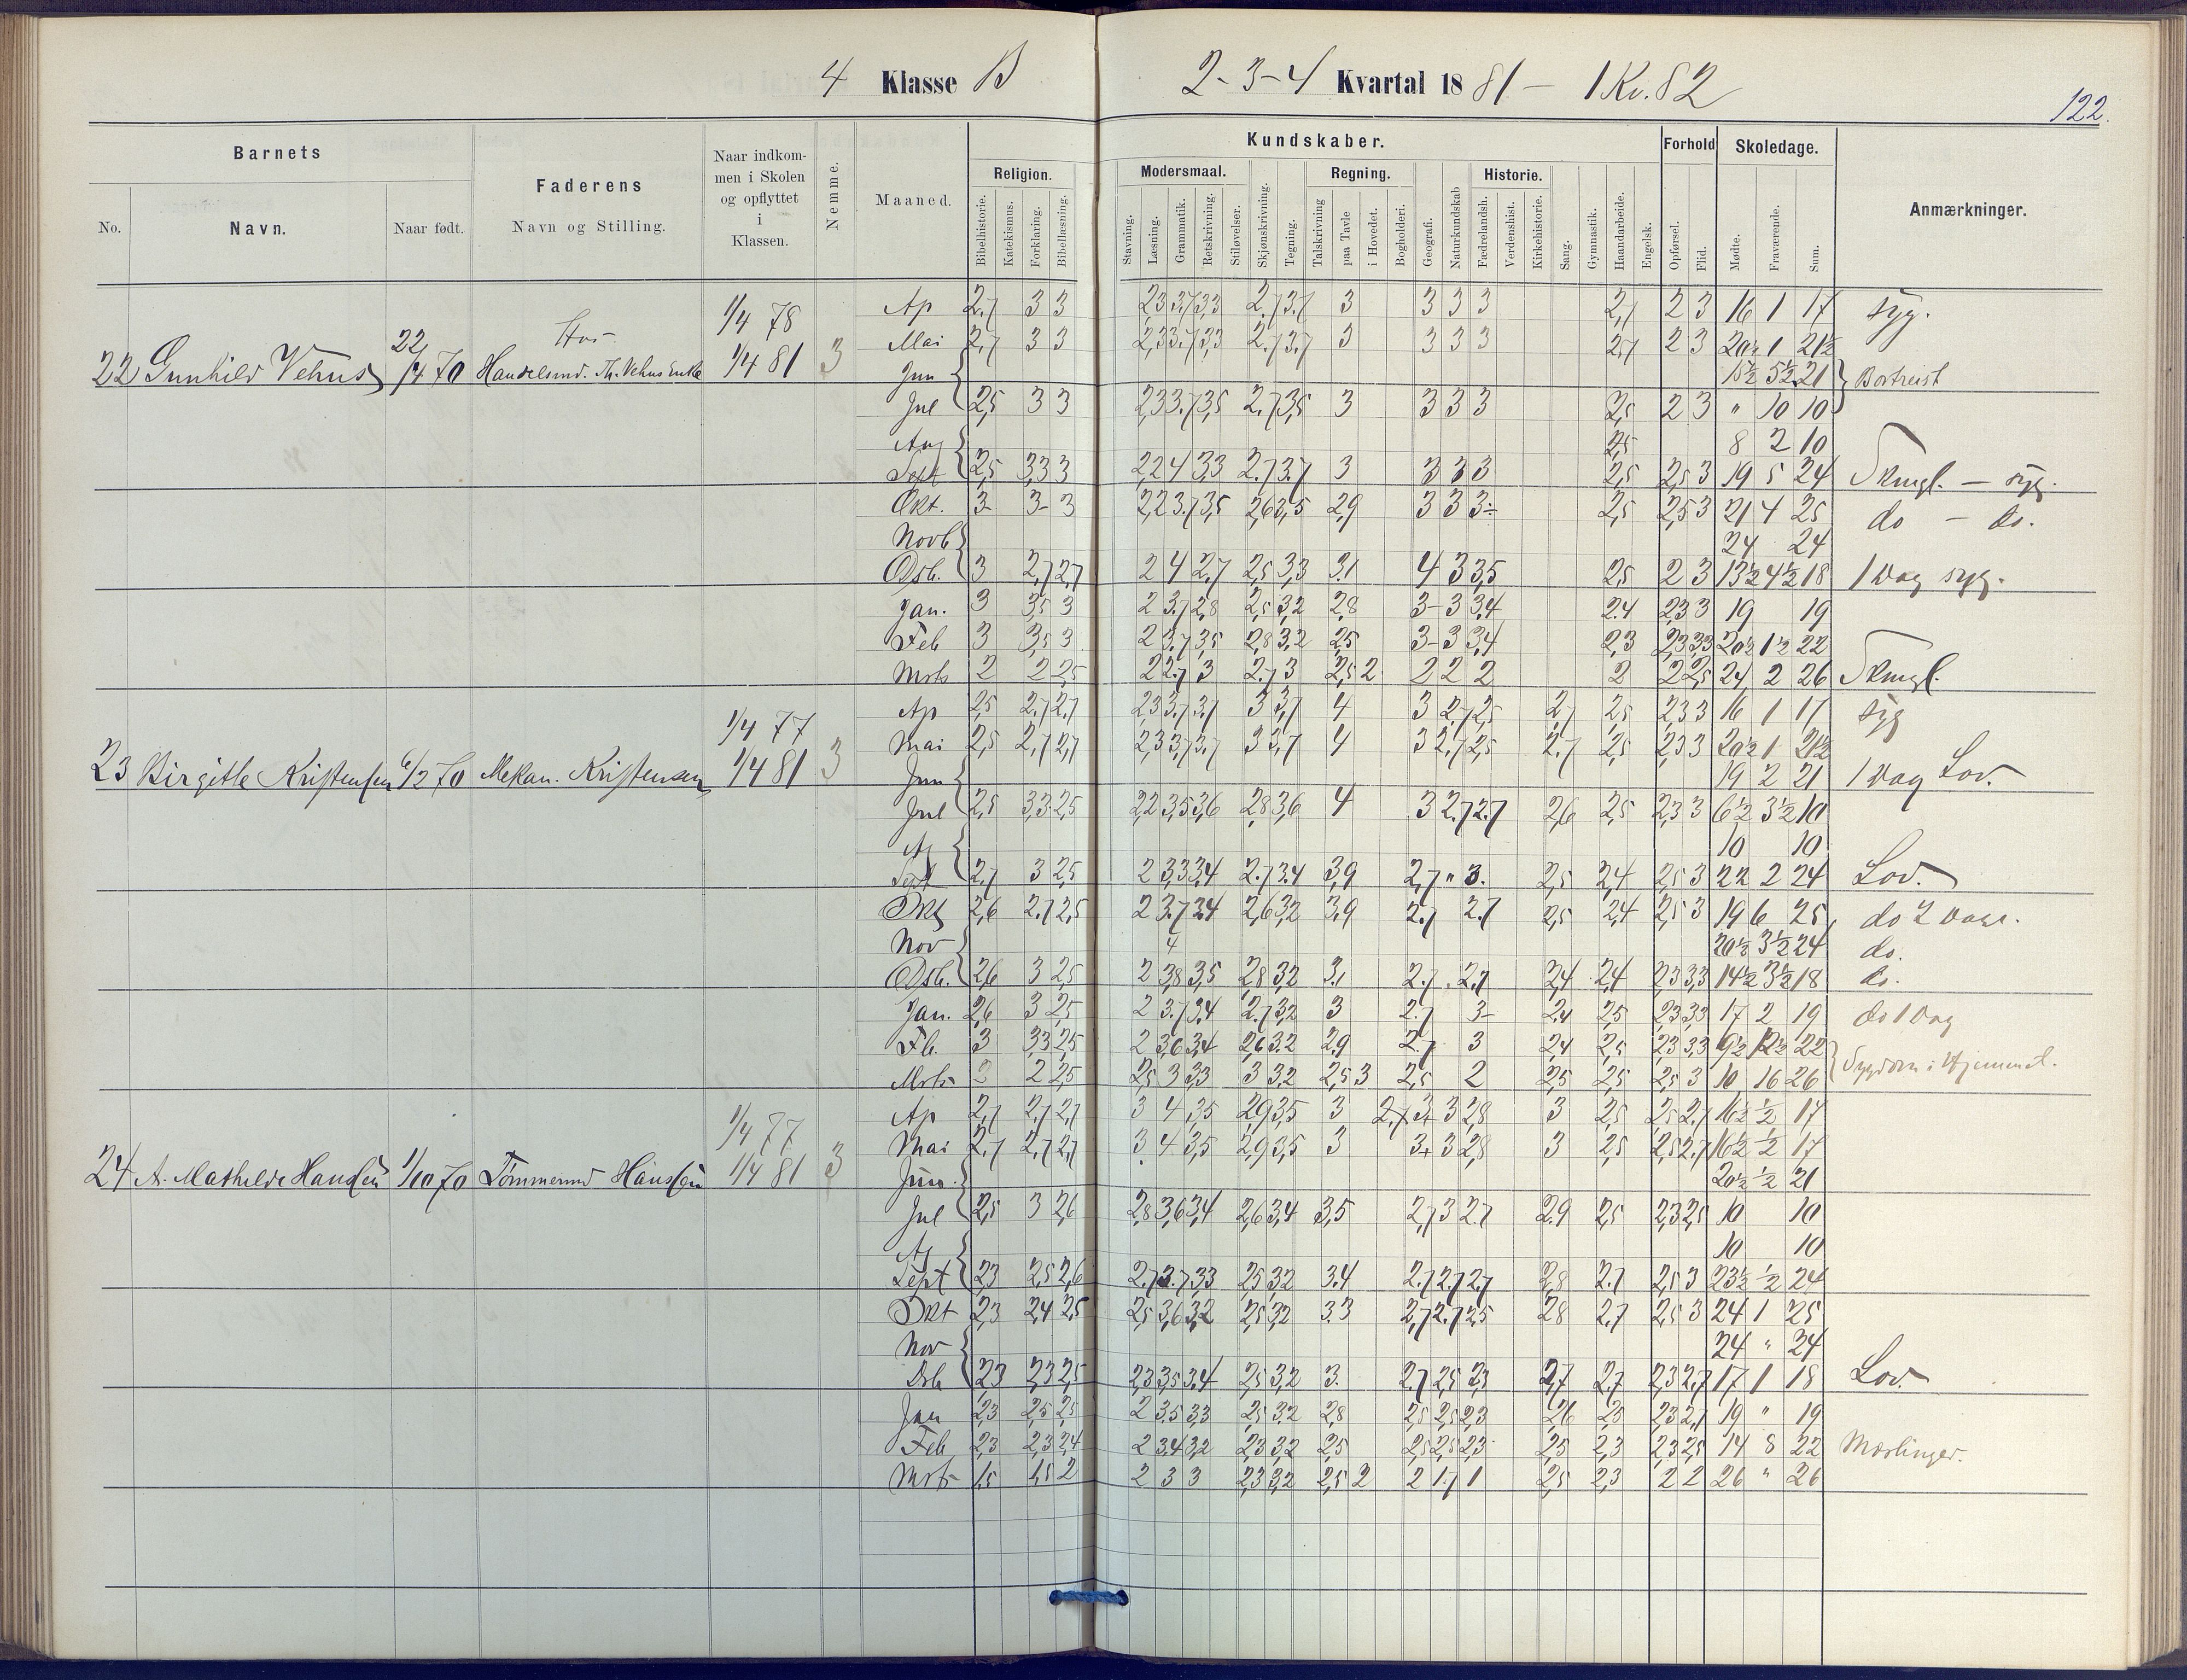 4 Klasse B
2-3-4 Kvartal 1881 - 1 Kv. 82
122.
Barnets
No.
Navn.
Naar født.
Faderens
Navn og Stilling.
Naar indkom-
men i Skolen
og opflyttet
i
Klassen.
Nemme.
Maaned.
Kundskaber.
Religion.
Bibelhistorie.
Katekismus.
Forklaring.
Bibellæsning.
Modersmaal.
Stavning.
Læsning.
Grammatik.
Retskrivning.
Stiløvelser.
Skjønskrivning.
Tegning.
Regning.
Talskrivning
paa Tavle
i Hovedet.
Bogholderi.
Geografi.
Naturkundskab
Historie.
Fædrelandsh.
Verdenshist.
Kirkehistorie.
Sang.
Gymnastik.
Haandarbeide.
Engelsk.
Forhold
Opførsel.
Flid.
Skoledage.
Mødte.
Fraværende.
Sum.
Anmærkninger.
Ap 2,7 3 3 2,3 3,7 3,3 2,7 3,7 3 3 3 3 2,7 2 3 16 1 17 syg.
Mai 2,7 3 3 2,3 3,7 3,3 2,7 3,7 3 3 3 3 2,7 2 3 20½ 1 21½
22 Gunhild Vehus 22/4 70 Handelsmd. Th. Vehus Enke 1/4 78 1/4 81 3
Jun 15½ 5½ 21 Bortreist
Jul 2,5 3 3 2,3 3,7 3,5 2,7 3,5 3 3 3 3 2,5 2 3 " 10 10
Aug 2,5 8 2 10
Sept 2,5 3,3 3 2,2 4 3,3 2,7 3,7 3 3 3 3 2,5 2,5 3 19 5 24 Skmgl. - syg.
Okt. 3- 3- 3 2,2 3,7 3,5 2,6 3,5 2,9 3 3 3÷ 2,5 2,5 3 21 4 25 do - do.
Novb 24 24
Dsb. 3 2,7 2,7 2 4 2,7 2,5 3,3 3,1 4 3 3,5 2,5 2 3 13½ 4½ 18 1 Dag syg.
Jan. 3 3,5 3 2 3,7 2,8 2,5 3,2 2,8 3- 3 3,4 2,4 2,3 3 19 19
Feb 3 3,5 3 2 3,7 3,5 2,8 3,2 2,5 3- 3 3,4 2,3 2,3 3,3 20½ 1½ 22
Mrts 2 2 2,5 2 2,7 3 2,7 3 2,5 2 2 2 2 2 2 2,5 24 2 26 Skmgl.
Ap 2,5 2,7 2,7 2,3 3,7 3,7 3 3,7 4 3 2,7 2,5 2,7 2,5 2,3 3 16 1 17 syg
Mai 2,5 2,7 2,7 2,3 3,7 3,7 3 3,7 4 3 2,7 2,5 2,7 2,5 2,3 3 20½ 1 21½
23 Birgitte Kristensen 6/2 70 Mekan. Kristensen 1/4 77 1/4 81 3
Jun 19 2 21 1 Dag Lov.
Jul 2,5 3,3 2,5 2,2 3,5 3,6 2,8 3,6 4 3 2,7 2,7 2,6 2,5 2,3 3 6½ 3½ 10
Ag 10 10
Sept 2,7 3 2,5 2 3,3 3,4 2,7 3,4 3,9 2,7 " 3. 2,5 2,4 2,5 3 22 2 24 Lov.
Okt 2,6 2,7 2,5 2 3,7 3,4 2,6 3,2 3,9 2,7 2,7 2,5 2,4 2,5 3 19 6 25 do 2 Dage.
Nov 4 20½ 3½ 24 do.
Dsb. 2,6 3 2,5 2 3,8 3,5 2,8 3,2 3,1 2,7 2,7 2,4 2,4 2,3 3,3 14½ 3½ 18 do.
Jan. 2,6 3 2,5 2 3,7 3,4 2,7 3,2 3 2,7 3- 2,4 2,5 2,3 3,3 17 2 19 do 1 Dag
Fb. 3 3,3 2,5 2 3,6 3,4 2,6 3,2 2,9 2,7 3 2,4 2,5 2,3 3,3 9½ 12½ 22
Mrts 2 2 2,5 2,5 3 3,3 3 3,2 2,5 3 2,5 2 2,5 2,5 2,5 3 10 16 26 Sygdom i Hjemmet.
Ap 2,7 2,7 2,7 3 4 3,5 2,9 3,5 3 2,7 3+ 3 2,8 3 2,5 2,5 2,7 16½ ½ 17
Mai 2,7 2,7 2,7 3 4 3,5 2,9 3,5 3 3+ 3 2,8 3 2,5 2,5 2,7 16½ ½ 17
24 A. Mathilde Hansen 1/10 70 Tømmermd Hansen 1/4 77 1/4 81 3
Jun 20½ ½ 21
Jul 2,5 3 2,6 2,8 3,6 3,4 2,6 3,4 3,5 2,7 3 2,7 2,9 2,5 2,3 2,5 10 10
Ag 10 10
Sept 2,3 2,5 2,6 2,7 3,7 3,3 2,5 3,2 3,4 2,7 2,7 2,7 2,8 2,7 2,5 3 23½ ½ 24
Okt 2,3 2,4 2,5 2,5 3,6 3,2 2,5 3,2 3,3 2,7 2,7 2,5 2,8 2,7 2,5 3 24 1 25
Nov 24 " 24
Dsb 2,3 2,3 2,5 2,3 3,5 3,4 2,5 3,2 3. 2,7 2,5 2,3 2,7 2,7 2,3 2,7 17 1 18 Lov.
Jan 2,3 2,5 2,5 2 3,5 3,3 2,5 3,2 2,8 2,5 2,5 2,3 2,6 2,5 2,3 2,7 19 " 19
Feb 2,3 2,3 2,4 2 3,4 3,2 2,3 3,2 2,5 2,5 2,5 2,3 2,5 2,3 2,3 2,5 14 8 22 Mæslinger.
Mrts 1,5 1,5 2 2 3 3 2,3 3,2 2,5 2 2 1,7 1 2,5 2,3 2 2 26 " 26